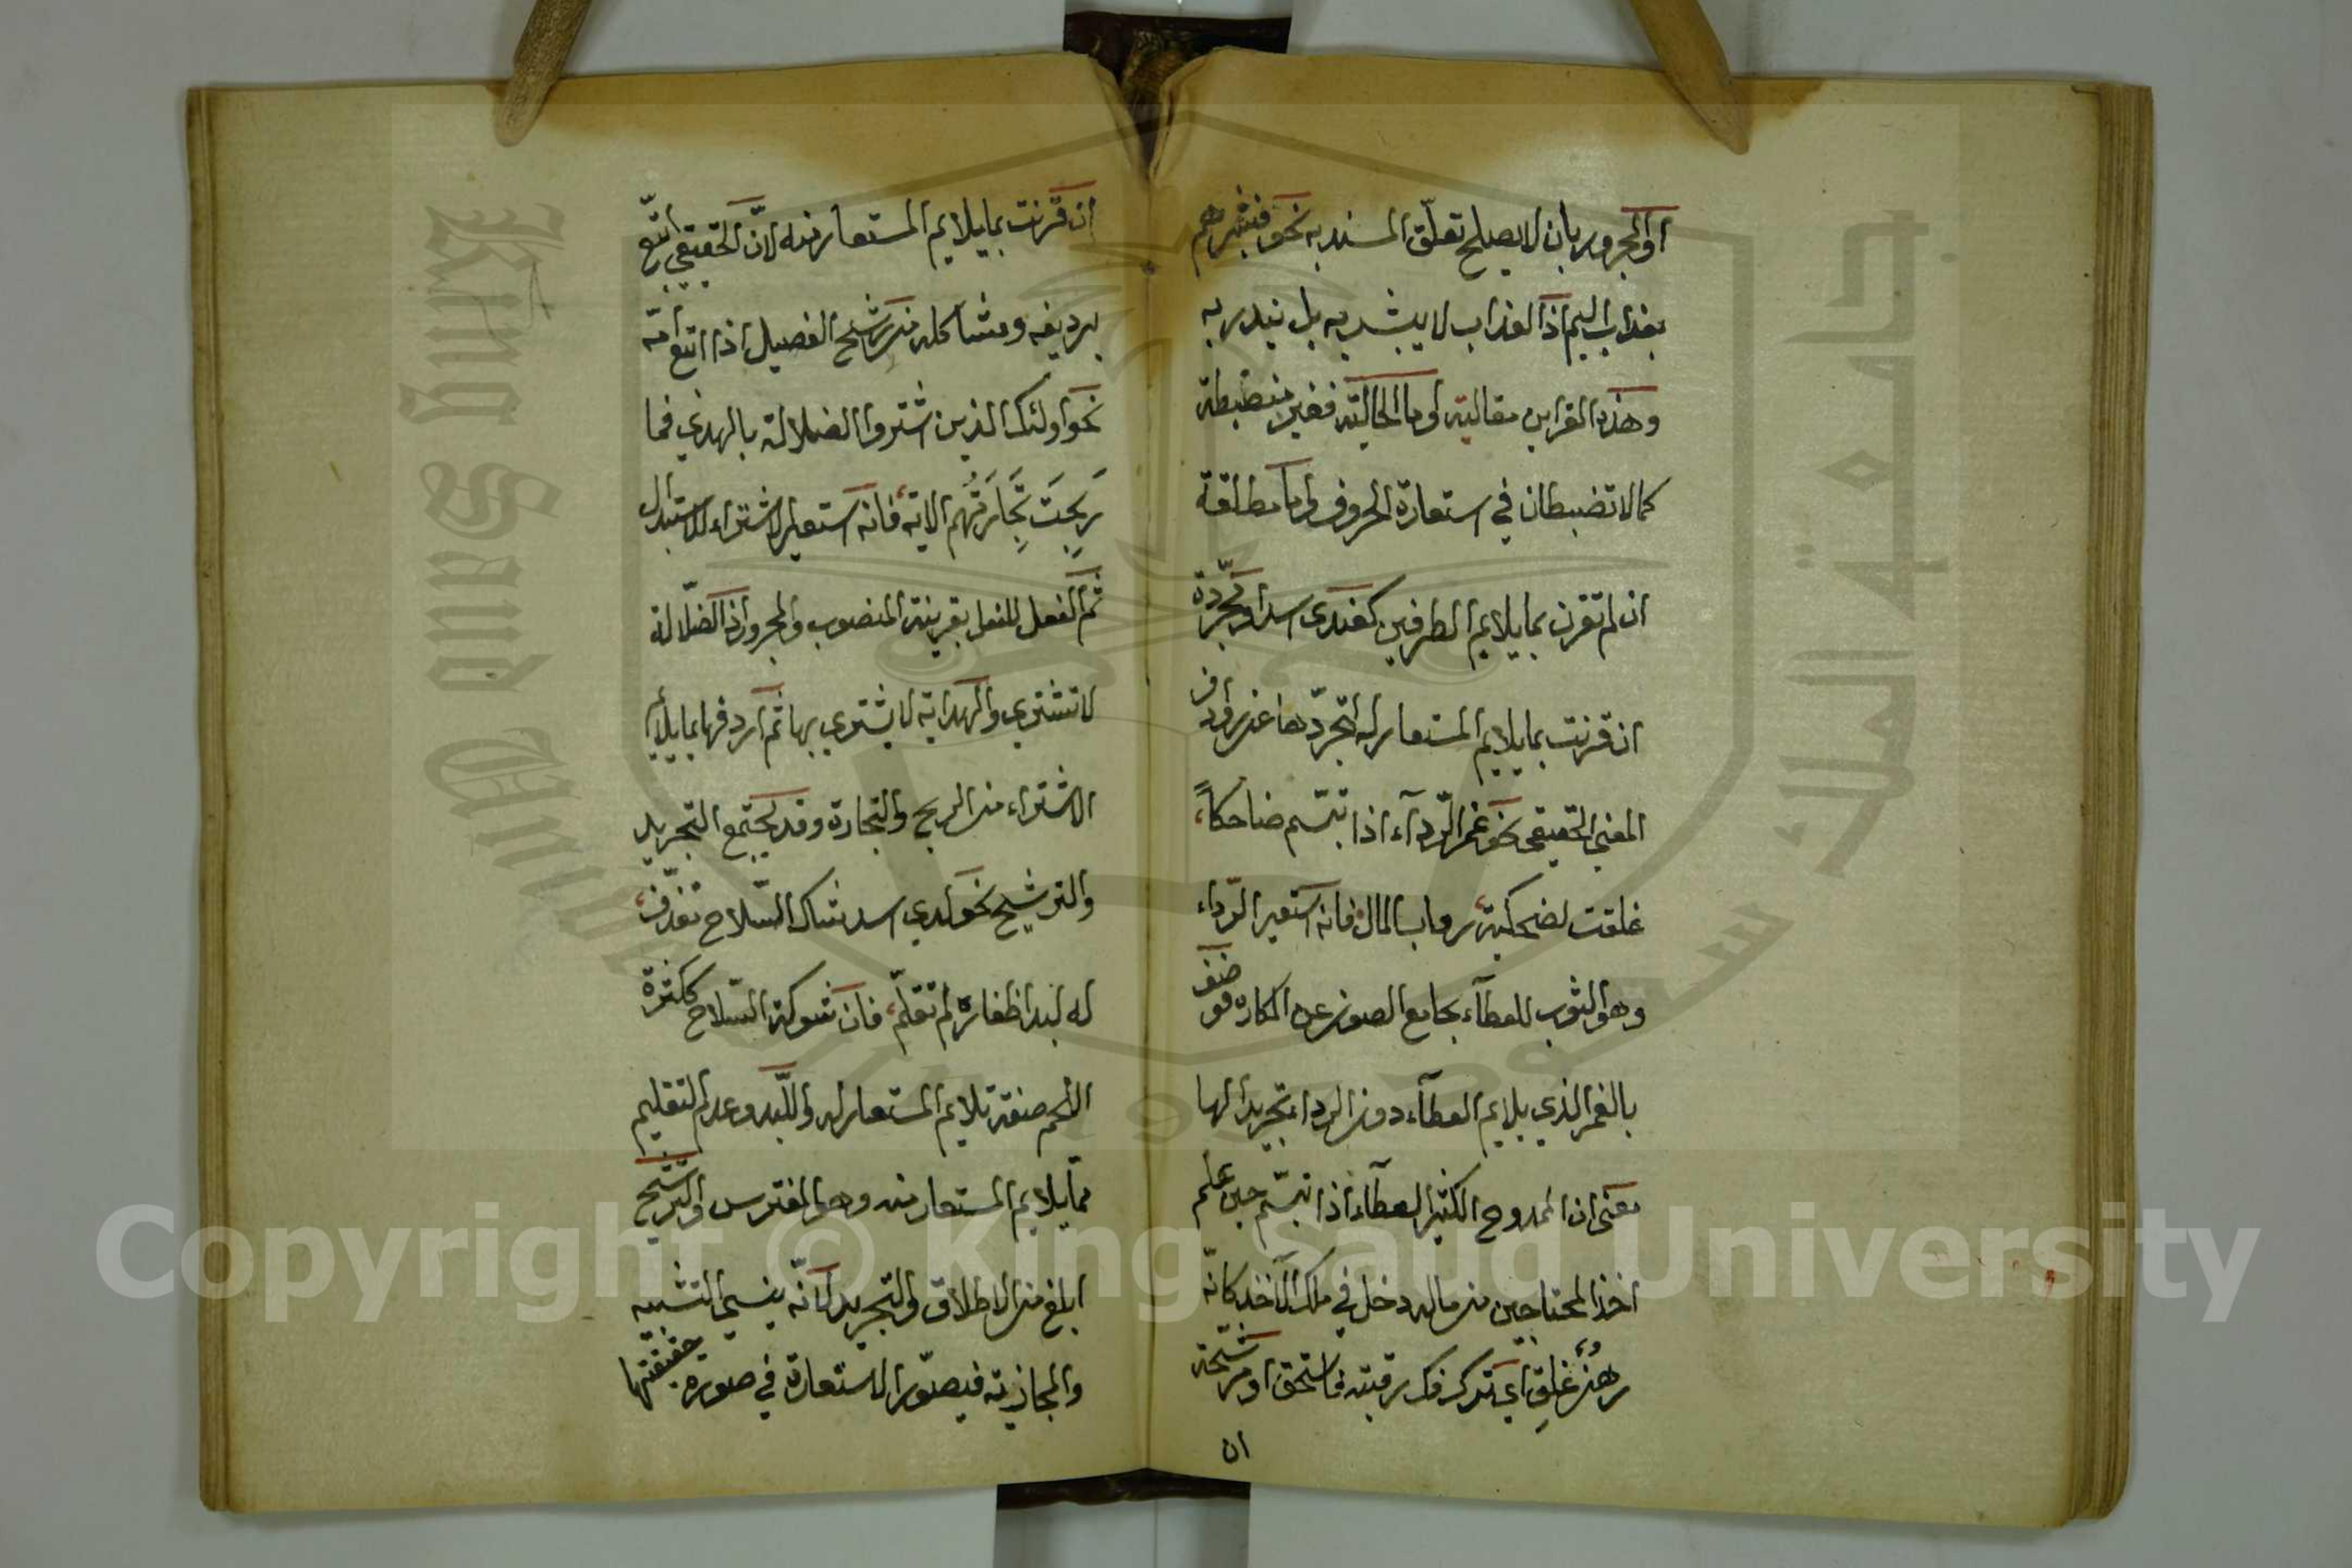 او المجرور بان لا يصلح تعلّق المسند به نحو فبشّرهم
بعذاب اليم اذ العذاب لا يبشر به بل ينذر به
وهذه القراين مقالية واما الحالية فغير منضبطة
كما لا تضبطان في استعارة الحروف واما مطلقة
ان لم تقرن بما يلايم الطرفين كعندى اسد او مجرّدة
ان قرنت بما يلايم المستعار له لتجرّدها عن روادف
المعنى الحقيقى نحو غمر الرّدآء اذا تبسّم ضاحكاً
غلقت لضحكته رقاب المال فانه استعير الرّداء
وهو الثوب للعطآء بجامع الصون عن المكاره فوصف
بالغمر الذي يلايم العطآء دون الرداء تجريدا لها
معنى ان الممدوح الكثير العطآء اذا تبسّم حين علم
اخذ المحتاجين من ماله دخل في ملك الآخذ كانّه
رهنٌ غلِق اي ترك فك رقبته فاستحق او مرشّحة
ان
ان قرنت بما يلايم المستعار منه لانّ الحقيقي اتبع
برديفه ومشاكله من ترشح الفصيل اذا اتبع امّه
نحو اولئك الذين اشتروا الضلالة بالهدي فما
رَبِحَتْ تِجَارَتُهم الاية فانه استعير الاشتراء للاستبدال
ثم الفعل للفعل بقرينة المنصوب والمجرور اذ الضّلالة
لا تشتري والهداية لا يشتري بها ثم اردفها بما يلايم
الاشتراء من الربح والتجارة وقد يجتمع التجريد
والترشيح نحو لدي اسد شاك السّلاح مقذّف
له لبد اظفاره لم تقلّم فان شوكة السّلاح ككثرة
اللحم صفة تلايم المستعار له واللّبد وعدم التقليم
ممّا يلايم المستعار منه وهو المفترس والترشيح
ابلغ من الاطلاق والتجريد لانّه ينسي التشبيه
والمجازية فيصوّر الاستعارة في صورة حقيقتها
King Saud University
جامعة الملك سعود
Copyright © King Saud University